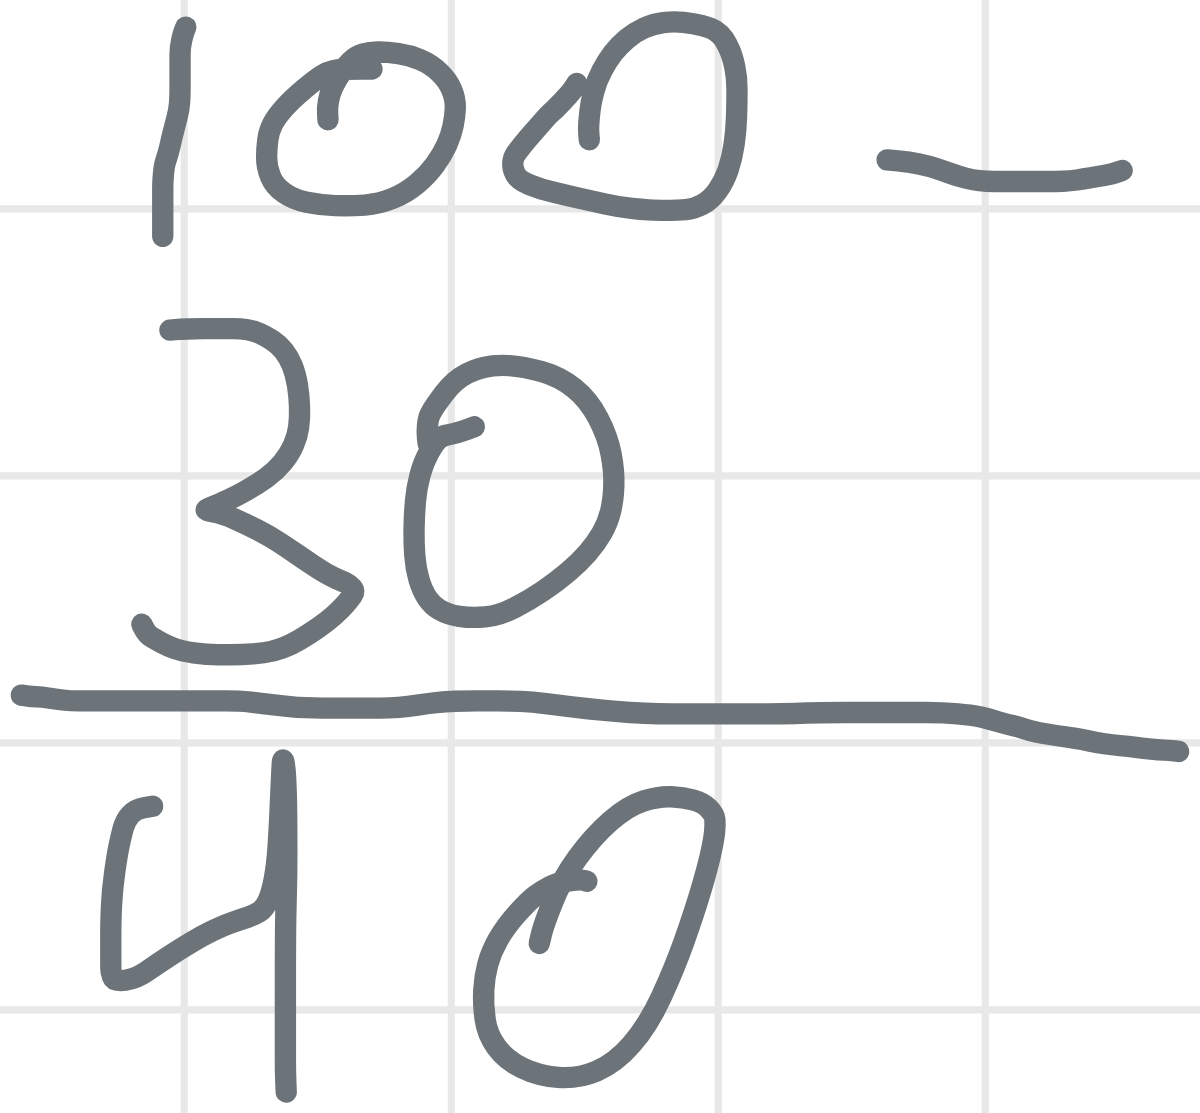 100 -
30
40